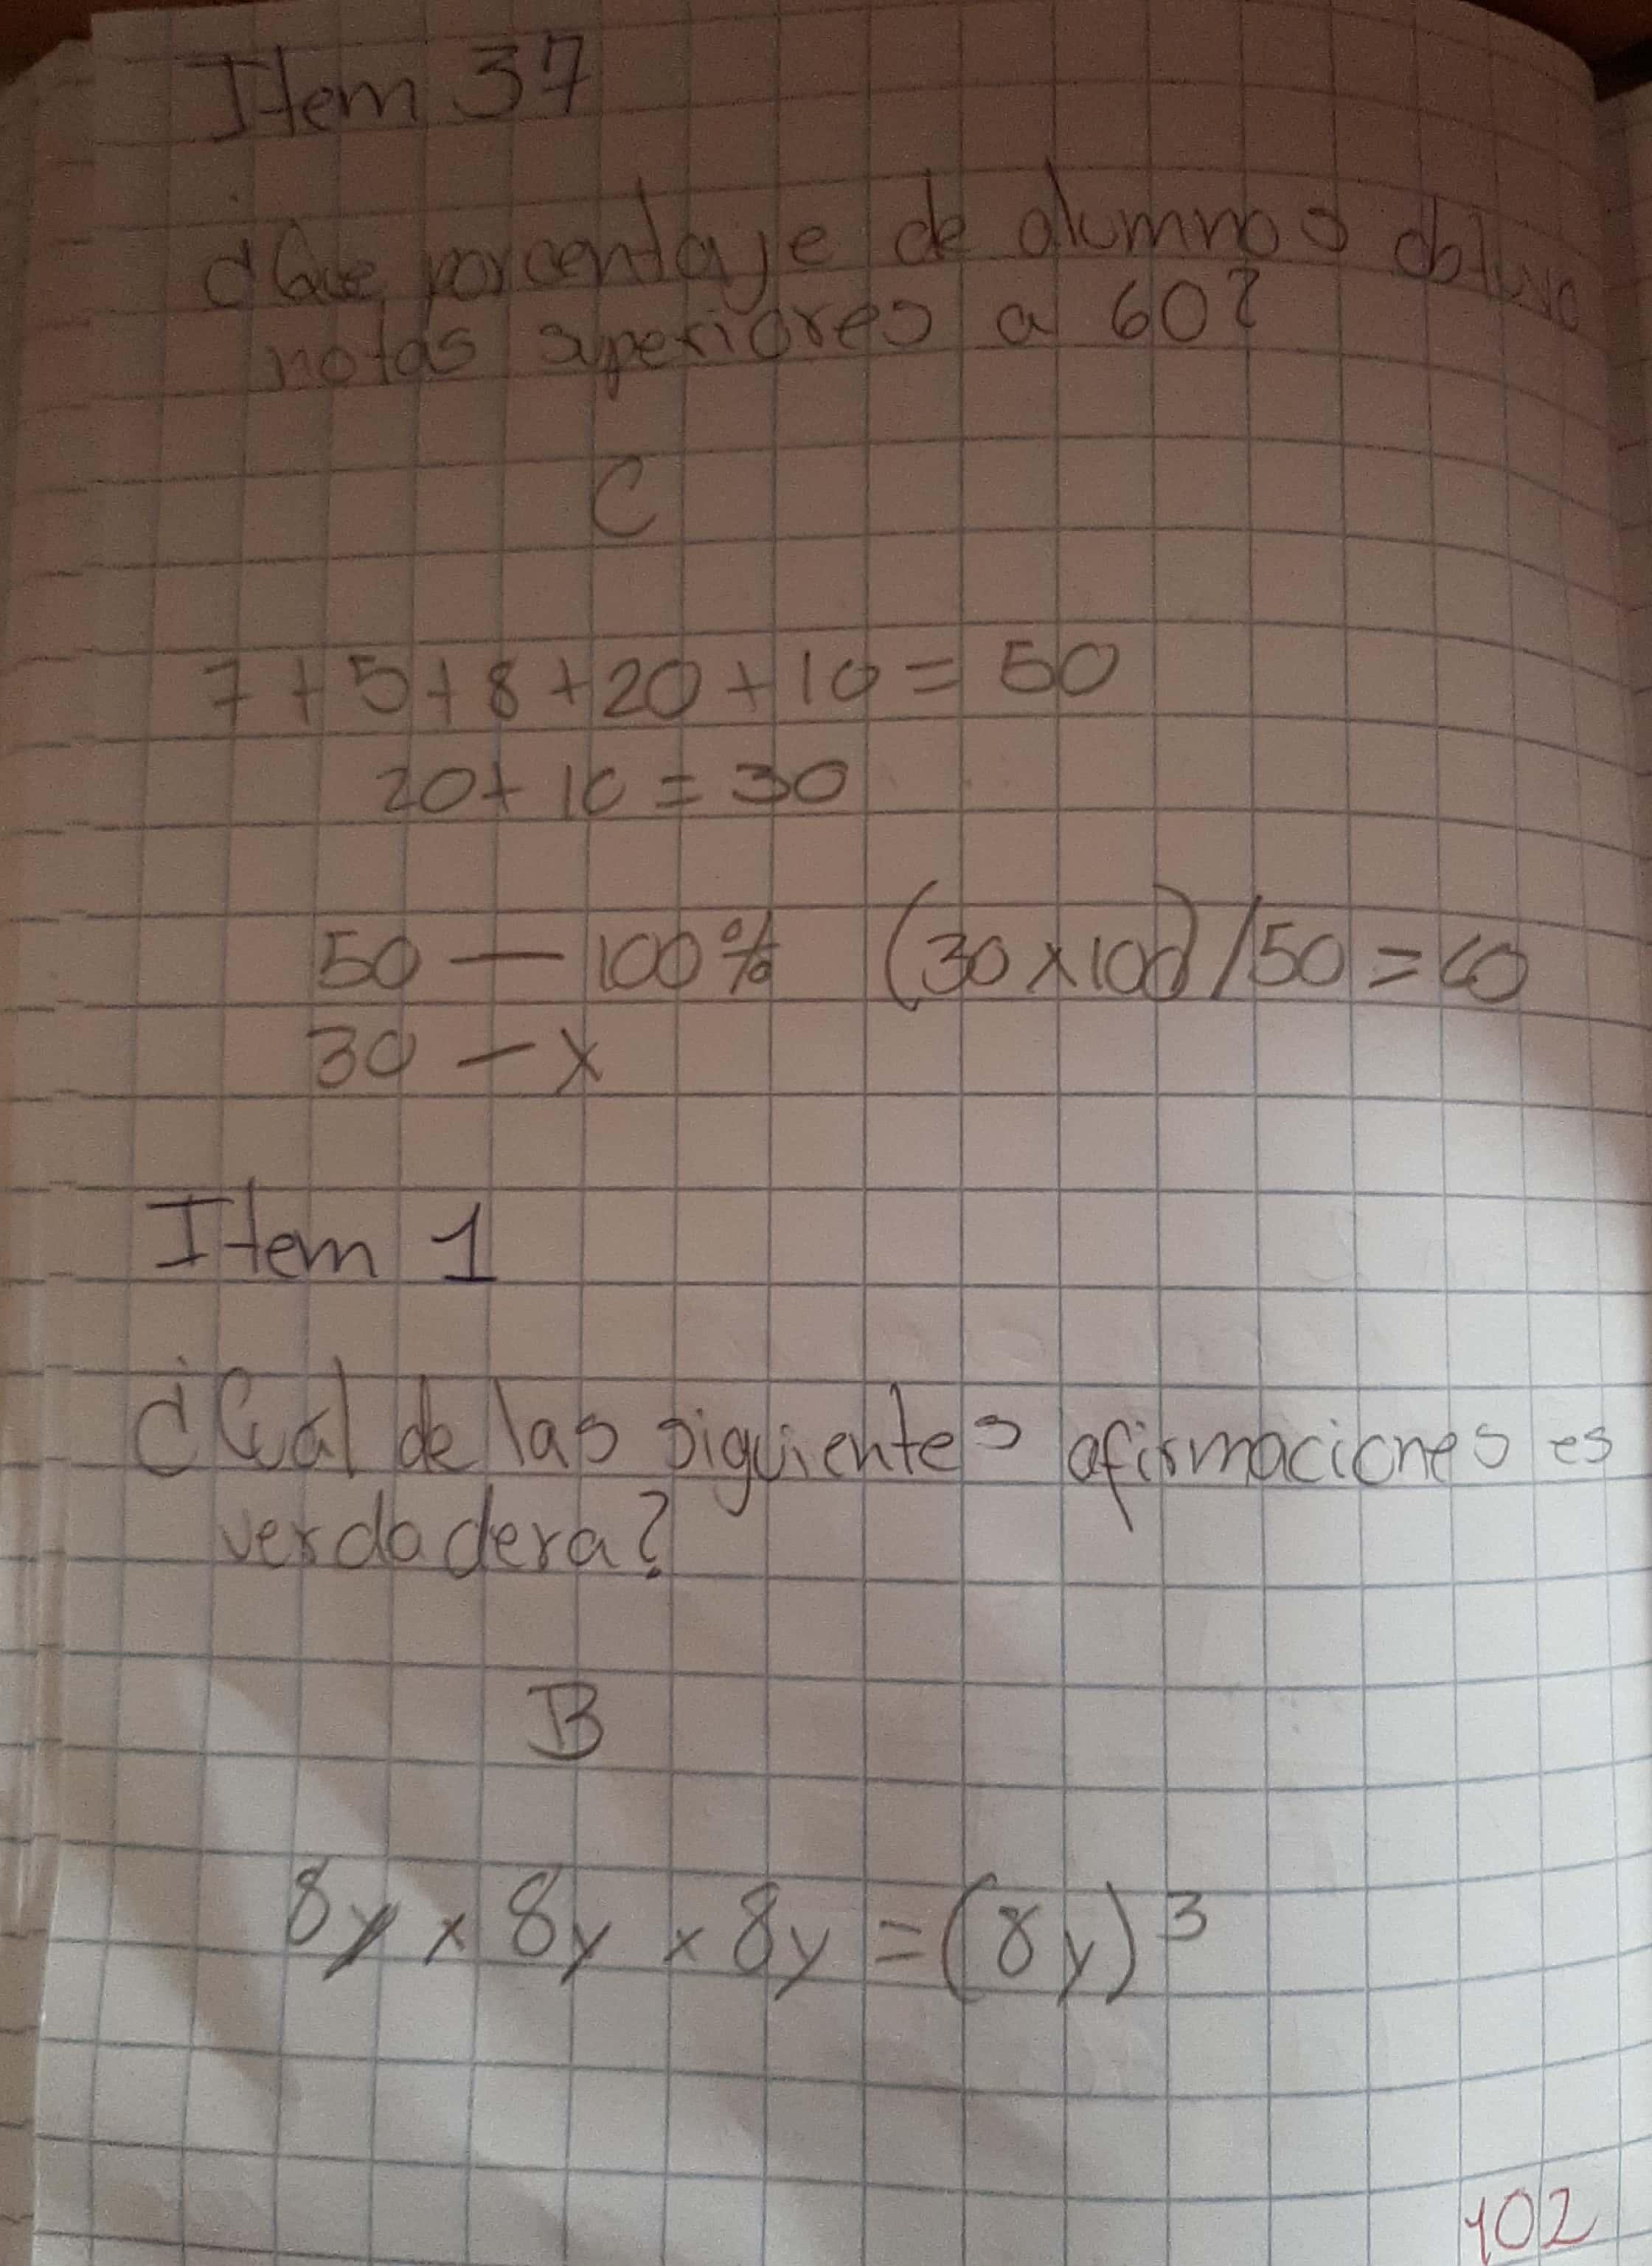 Item 37
¿Que porcentaje de alumnos obtuvo
notas superiores a 60?
C
7+5+8+20+10=50
20+10=30
50 — 100% (30x100)/50=60
30 — x
Item 1
¿Cual de las siguientes afirmaciones es
verdadera?
B
8y x 8y x 8y = (8y)³
102